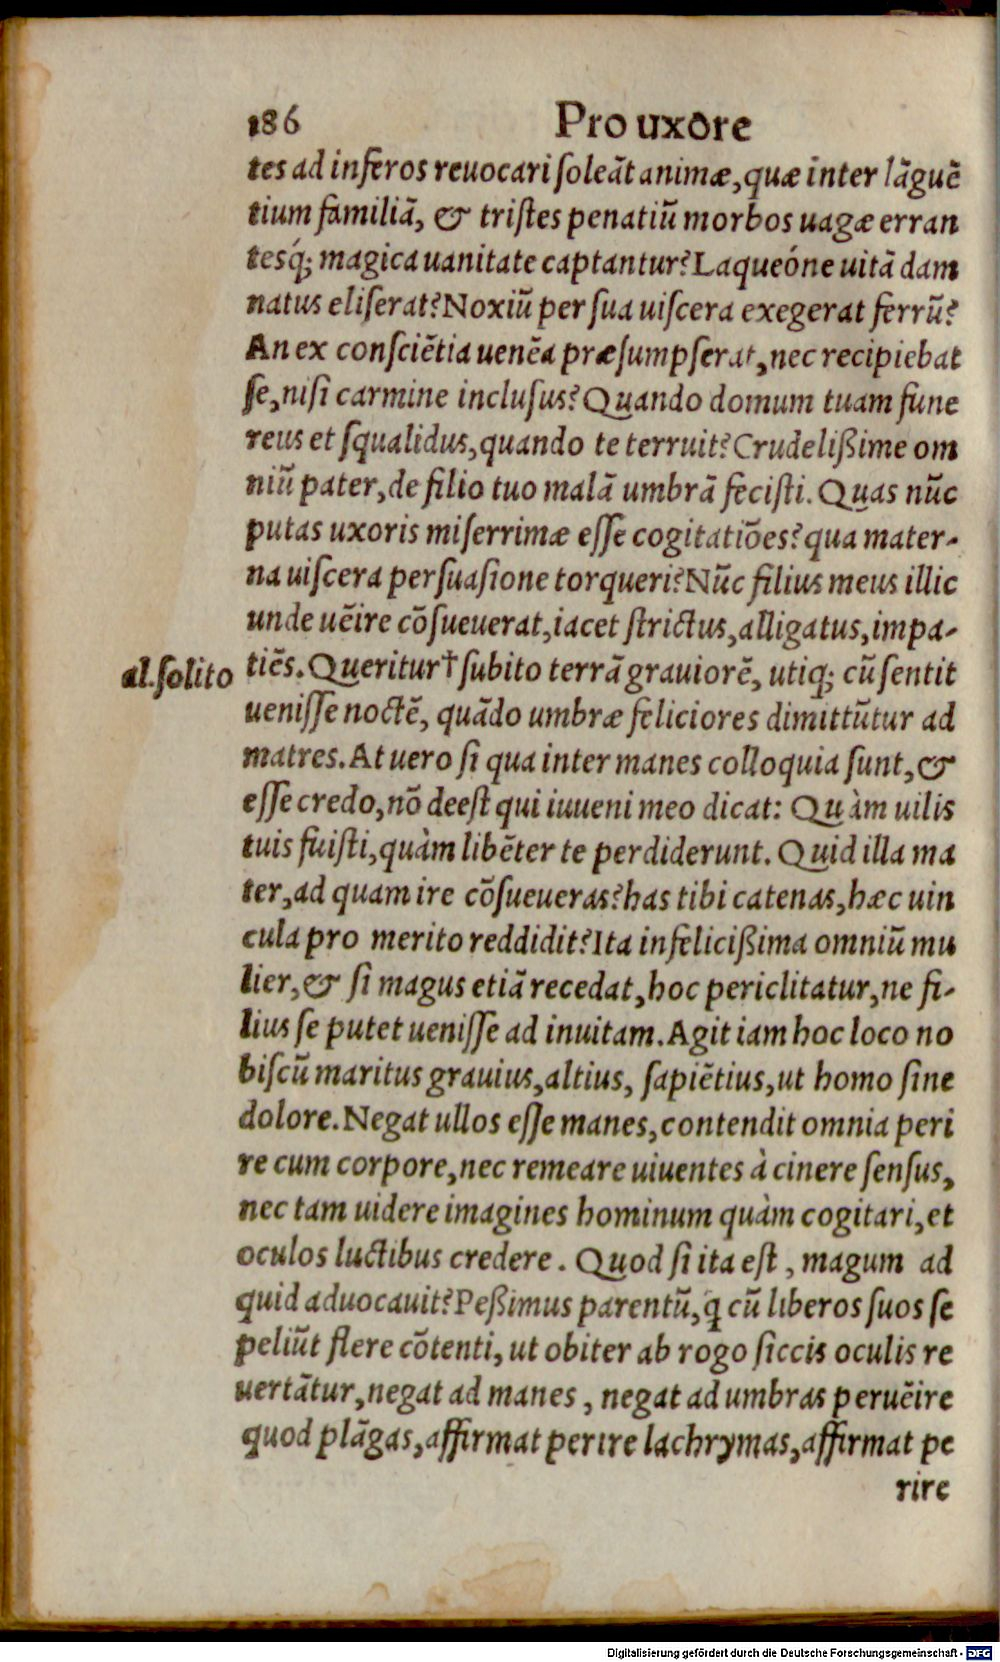 186 Pro uxore
tes ad inferos reuocari ſoleāt animæ, quæ inter lāguē
tium familiā, & triſtes penatiū morbos uagæ erran
tesq́; magica uanitate captantur? Laqueóne uitā dam
natus eliſerat? Noxiū per ſua uiſcera exegerat ferrū?
An ex conſciētia uenēa præſumpſerat, nec recipiebat
ſe, niſi carmine incluſus? Quando domum tuam fune
reus et ſqualidus, quando te terruit? Crudelißime om
niū pater, de filio tuo malā umbrā feciſti. Quas nūc
putas uxoris miſerrimæ eſſe cogitatiōes? qua mater-
na uiſcera perſuaſione torqueri? Nūc filius meus illic
unde uēire cōſueuerat, iacet ſtrictus, alligatus, impa-
al. ſolito tiēs. Queritur† ſubito terrā grauiorē, utiq; cū ſentit
ueniſſe noctē, quādo umbræ feliciores dimittūtur ad
matres. At uero ſi qua inter manes colloquia ſunt, &
eſſe credo, nō deeſt qui iuueni meo dicat: Quàm uilis
tuis fuiſti, quàm libēter te perdiderunt. Quid illa ma
ter, ad quam ire cōſueueras? has tibi catenas, hæc uin
cula pro merito reddidit? Ita infelicißima omniū mu
lier, & ſi magus etiā recedat, hoc periclitatur, ne fi-
lius ſe putet ueniſſe ad inuitam. Agit iam hoc loco no
biſcū maritus grauius, altius, ſapiētius, ut homo ſine
dolore. Negat ullos eſſe manes, contendit omnia peri
re cum corpore, nec remeare uiuentes à cinere ſenſus,
nec tam uidere imagines hominum quàm cogitari, et
oculos luctibus credere. Quod ſi ita eſt, magum ad
quid aduocauit? Peßimus parentū, q̃ cū liberos ſuos ſe
peliūt flere cōtenti, ut obiter ab rogo ſiccis oculis re
uertātur, negat ad manes, negat ad umbras peruēire
quod plāgas, affirmat perire lachrymas, affirmat pe
rire
Digitalisierung gefördert durch die Deutsche Forschungsgemeinschaft - DFG